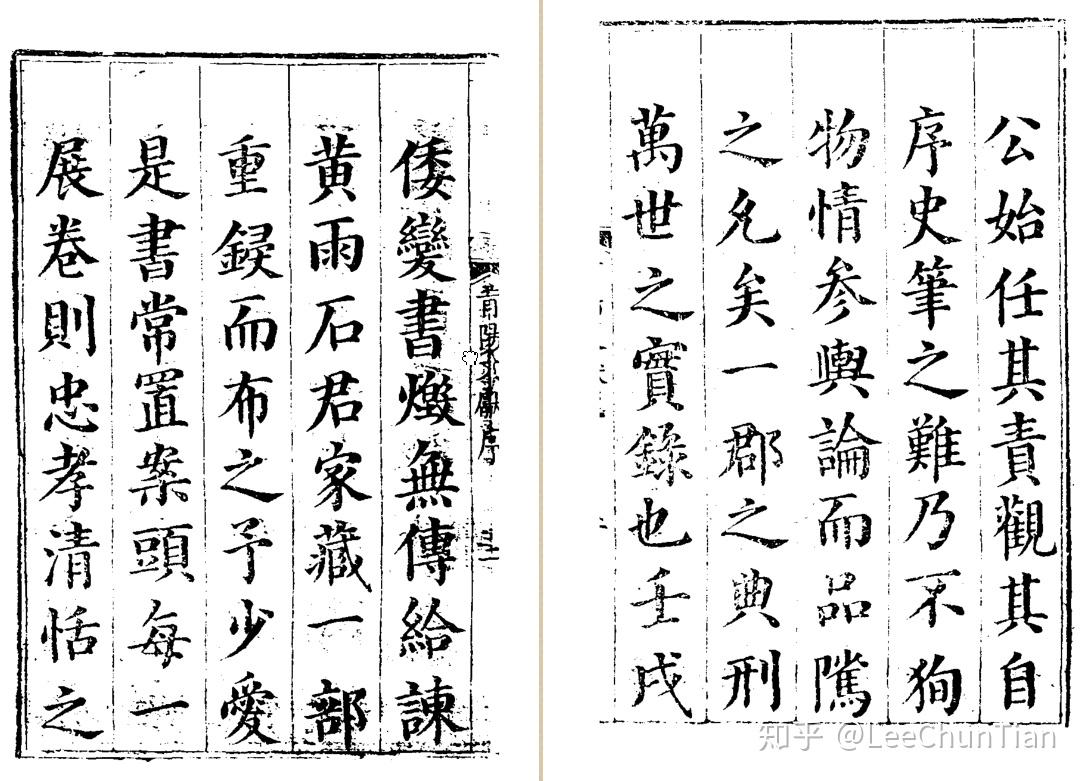 公始任其責觀其自
序史筆之難乃不狥
物情参輿論而品隲
之允矣一郡之典刑
萬世之實錄也壬戌
莆陽文獻序
倭變書燬無傳給諫
黄雨石君家藏一部
重鋟而布之予少愛
是書常置案頭每一
展卷則忠孝清恬之
知乎 @LeeChunTian